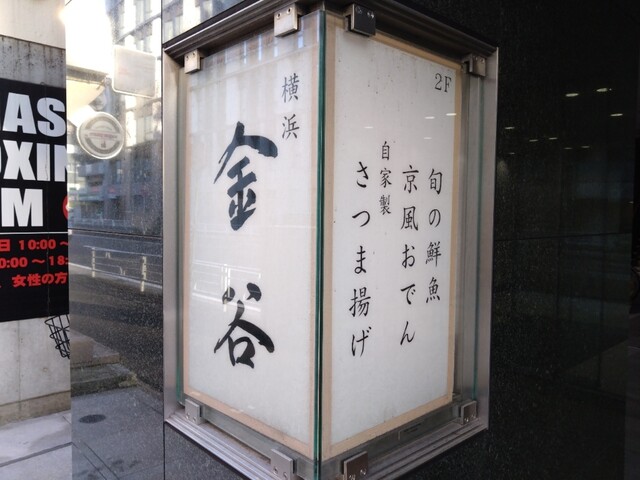 横浜
金谷
2F
旬の鮮魚
京風おでん
自家製
さつま揚げ
AS
OXIN
M
日 10:00～
0:00～18:
女性の方